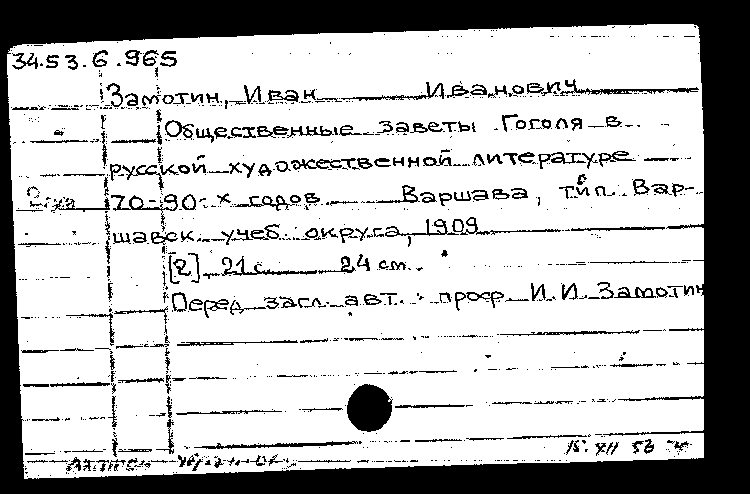 34.53.6.965
Замотин, Иван Иванович
Общественные заветы Гоголя в
русской художественной литературе
70-90-х годов Варшава, тип. Вар-
шавск. учеб. округа, 1909
[2], 21 с. 24 см.
Перед загл. авт.: проф. И.И. Замотин